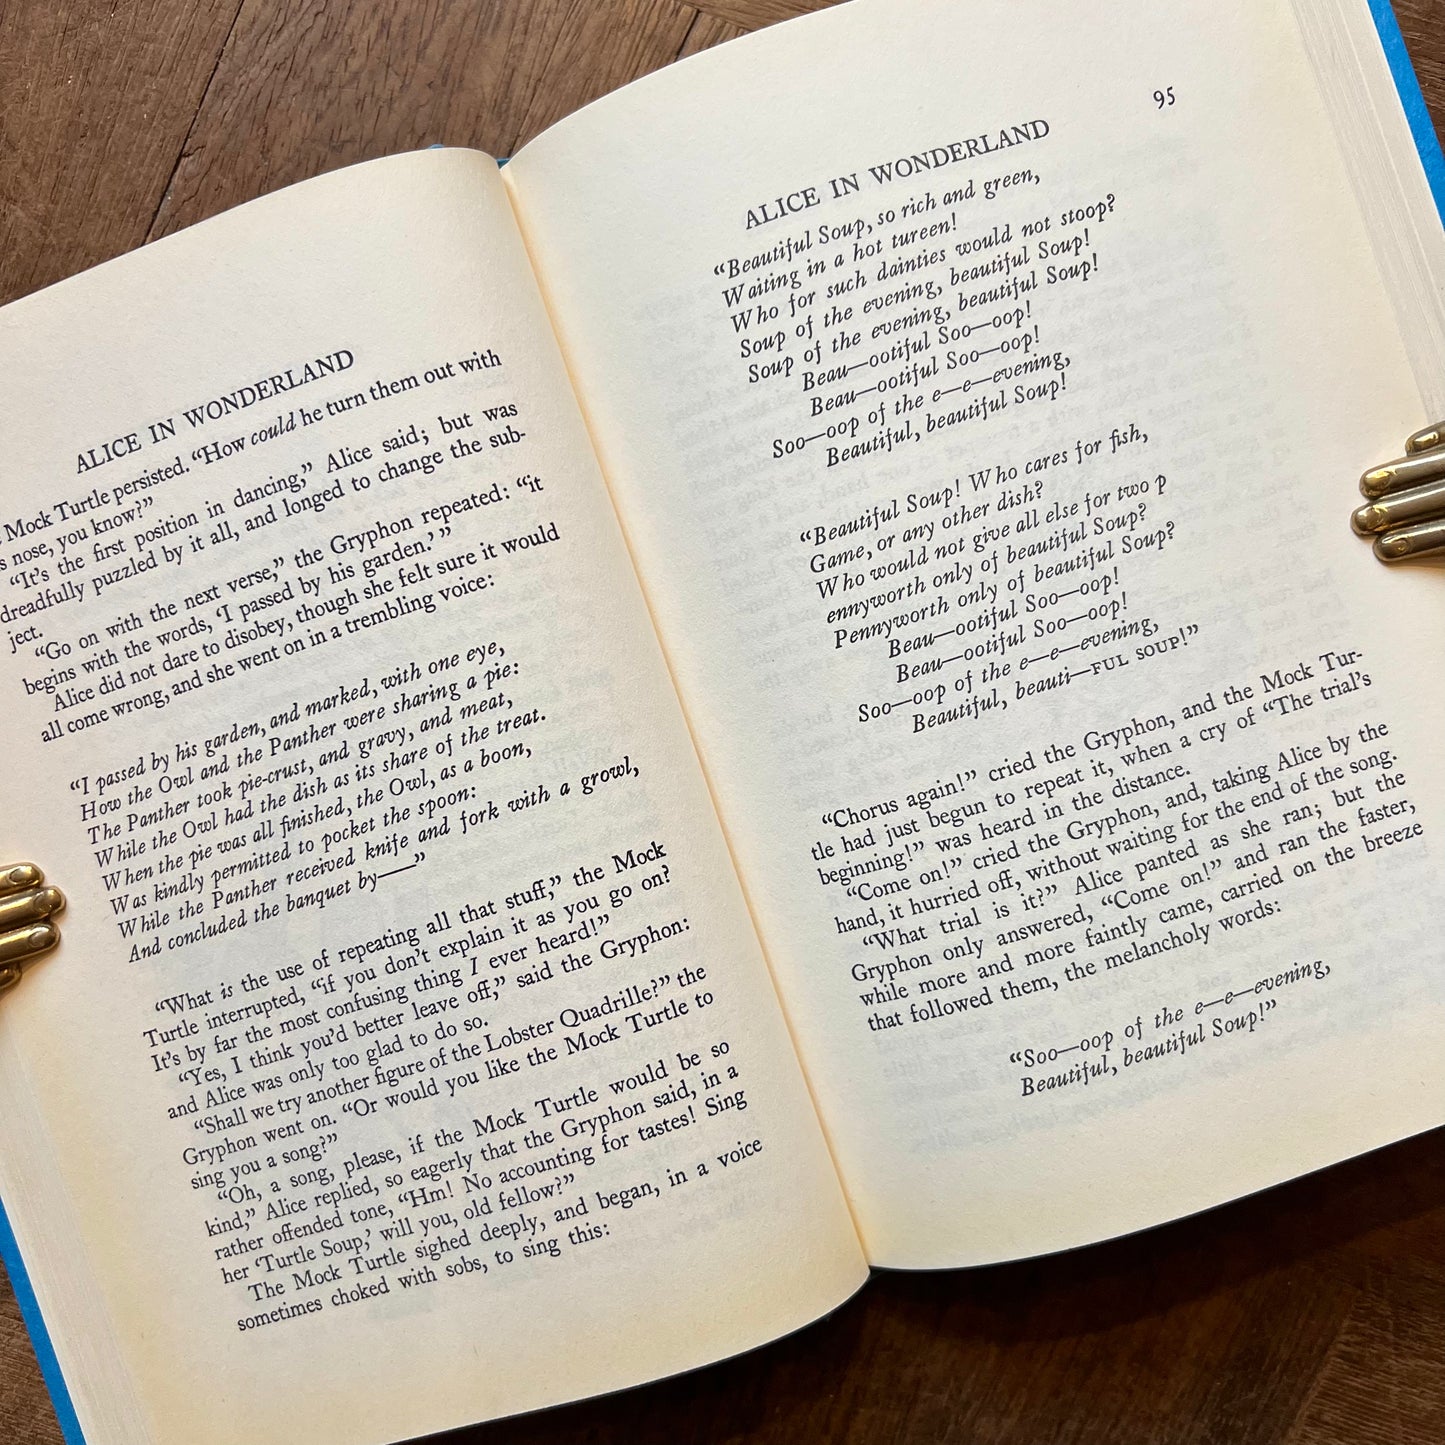 ALICE IN WONDERLAND
Mock Turtle persisted. “How could he turn them out with
nose, you know?”
“It’s the first position in dancing,” Alice said; but was
dreadfully puzzled by it all, and longed to change the sub-
ject.
“Go on with the next verse,” the Gryphon repeated: “it
begins with the words, ‘I passed by his garden.’”
Alice did not dare to disobey, though she felt sure it would
all come wrong, and she went on in a trembling voice:
“I passed by his garden, and marked, with one eye,
How the Owl and the Panther were sharing a pie:
The Panther took pie-crust, and gravy, and meat,
While the Owl had the dish as its share of the treat.
When the pie was all finished, the Owl, as a boon,
Was kindly permitted to pocket the spoon:
While the Panther received knife and fork with a growl,
And concluded the banquet by——”
“What is the use of repeating all that stuff,” the Mock
Turtle interrupted, “if you don’t explain it as you go on?
It’s by far the most confusing thing I ever heard!”
“Yes, I think you’d better leave off,” said the Gryphon:
and Alice was only too glad to do so.
“Shall we try another figure of the Lobster Quadrille?” the
Gryphon went on. “Or would you like the Mock Turtle to
sing you a song?”
“Oh, a song, please, if the Mock Turtle would be so
kind,” Alice replied, so eagerly that the Gryphon said, in a
rather offended tone, “Hm! No accounting for tastes! Sing
her ‘Turtle Soup,’ will you, old fellow?”
The Mock Turtle sighed deeply, and began, in a voice
sometimes choked with sobs, to sing this:
95
ALICE IN WONDERLAND
“Beautiful Soup, so rich and green,
Waiting in a hot tureen!
Who for such dainties would not stoop?
Soup of the evening, beautiful Soup!
Soup of the evening, beautiful Soup!
Beau—ootiful Soo—oop!
Beau—ootiful Soo—oop!
Soo—oop of the e—e—evening,
Beautiful, beautiful Soup!
“Beautiful Soup! Who cares for fish,
Game, or any other dish?
Who would not give all else for two p
ennyworth only of beautiful Soup?
Pennyworth only of beautiful Soup?
Beau—ootiful Soo—oop!
Beau—ootiful Soo—oop!
Soo—oop of the e—e—evening,
Beautiful, beauti—FUL SOUP!”
“Chorus again!” cried the Gryphon, and the Mock Tur-
tle had just begun to repeat it, when a cry of “The trial’s
beginning!” was heard in the distance.
“Come on!” cried the Gryphon, and, taking Alice by the
hand, it hurried off, without waiting for the end of the song.
“What trial is it?” Alice panted as she ran; but the
Gryphon only answered, “Come on!” and ran the faster,
while more and more faintly came, carried on the breeze
that followed them, the melancholy words:
“Soo—oop of the e—e—evening,
Beautiful, beautiful Soup!”